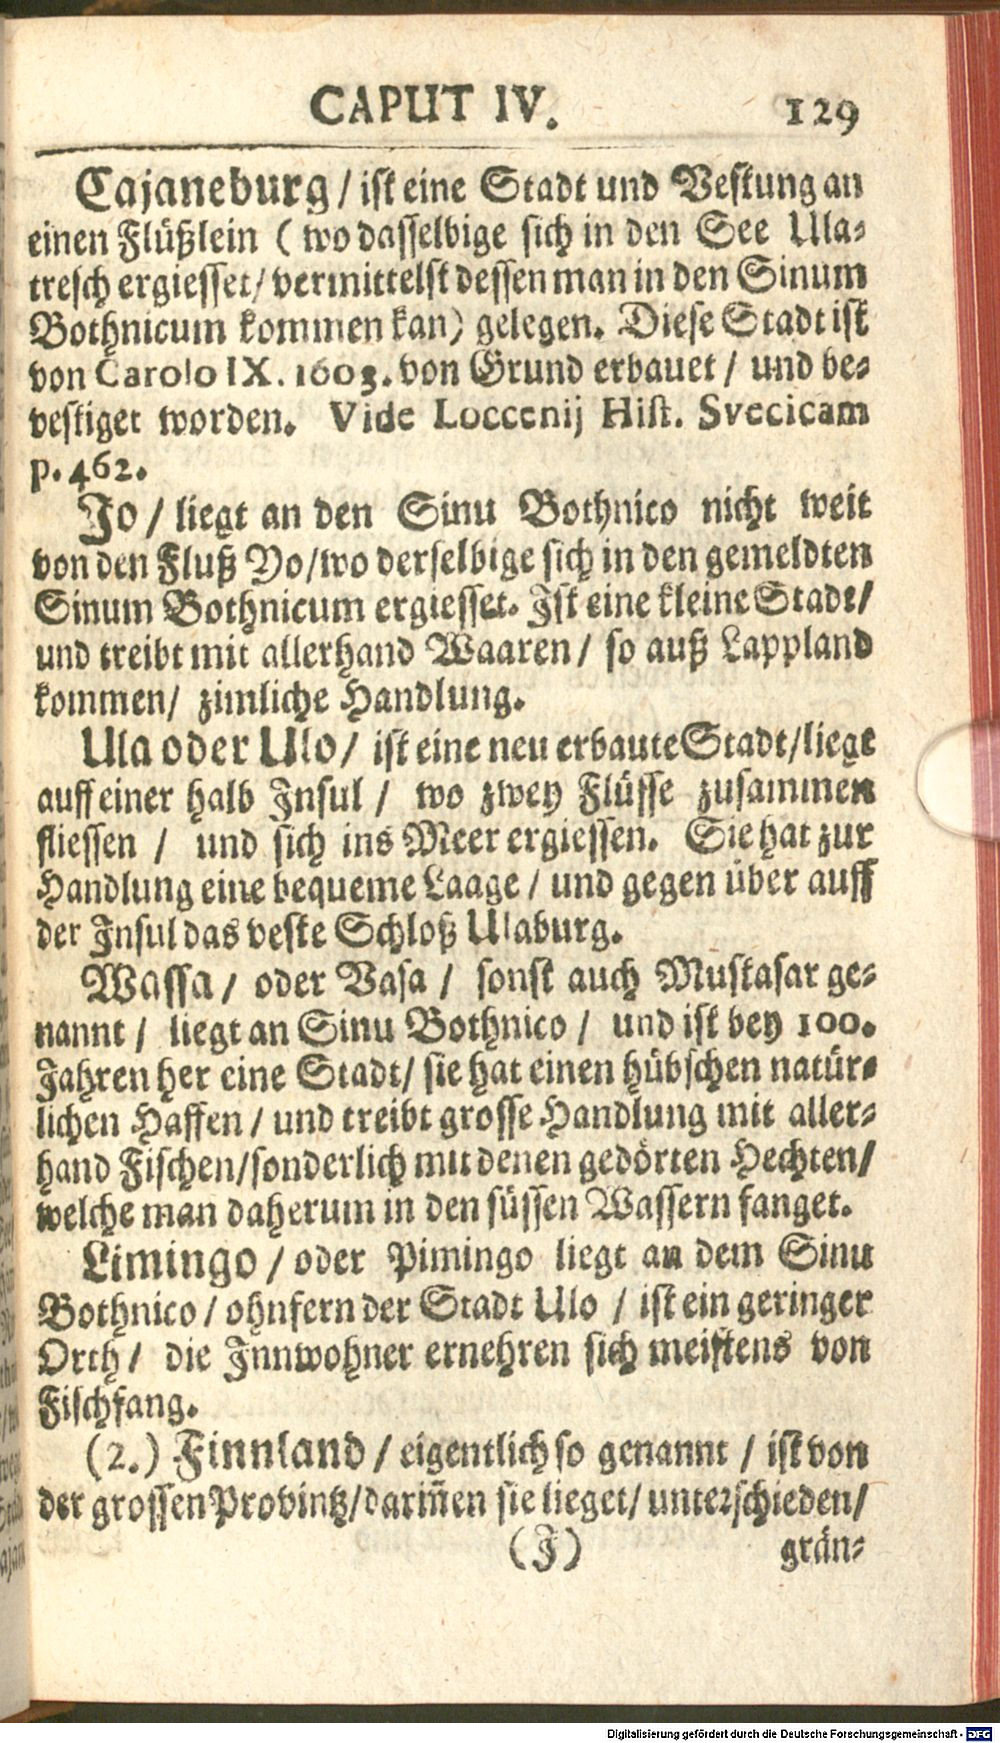 CAPUT IV. 129
Cajaneburg / ist eine Stadt und Vestung an
einen Flüßlein ( wo dasselbige sich in den See Ula-
tresch ergiesset / vermittelst dessen man in den Sinum
Bothnicum kommen kan) gelegen. Diese Stadt ist
von Carolo IX. 1603. von Grund erbauet / und be-
vestiget worden. Vide Loccenij Hist. Svecicam
p. 462.
Jo / liegt an den Sinu Bothnico nicht weit
von den Fluß Yo / wo derselbige sich in den gemeldten
Sinum Bothnicum ergiesset. Ist eine kleine Stadt /
und treibt mit allerhand Waaren / so auß Lappland
kommen / zimliche Handlung.
Ula oder Ulo / ist eine neu erbaute Stadt / liegt
auff einer halb Insul / wo zwey Flüsse zusammen
fliessen / und sich ins Meer ergiessen. Sie hat zur
Handlung eine bequeme Laage / und gegen über auff
der Insul das veste Schloß Ulaburg.
Wassa / oder Vasa / sonst auch Muskasar ge-
nannt / liegt an Sinu Bothnico / und ist bey 100.
Jahren her eine Stadt / sie hat einen hübschen natür-
lichen Haffen / und treibt grosse Handlung mit aller-
hand Fischen / sonderlich mit denen gedörten Hechten /
welche man daherum in den süssen Wassern fanget.
Limingo / oder Pimingo liegt an dem Sinu
Bothnico / ohnfern der Stadt Ulo / ist ein geringer
Orth / die Innwohner ernehren sich meistens von
Fischfang.
(2.) Finnland / eigentlich so genannt / ist von
der grossen Provintz / dariñen sie lieget / unterschieden /
(J) grän-
Digitalisierung gefördert durch die Deutsche Forschungsgemeinschaft - DFG